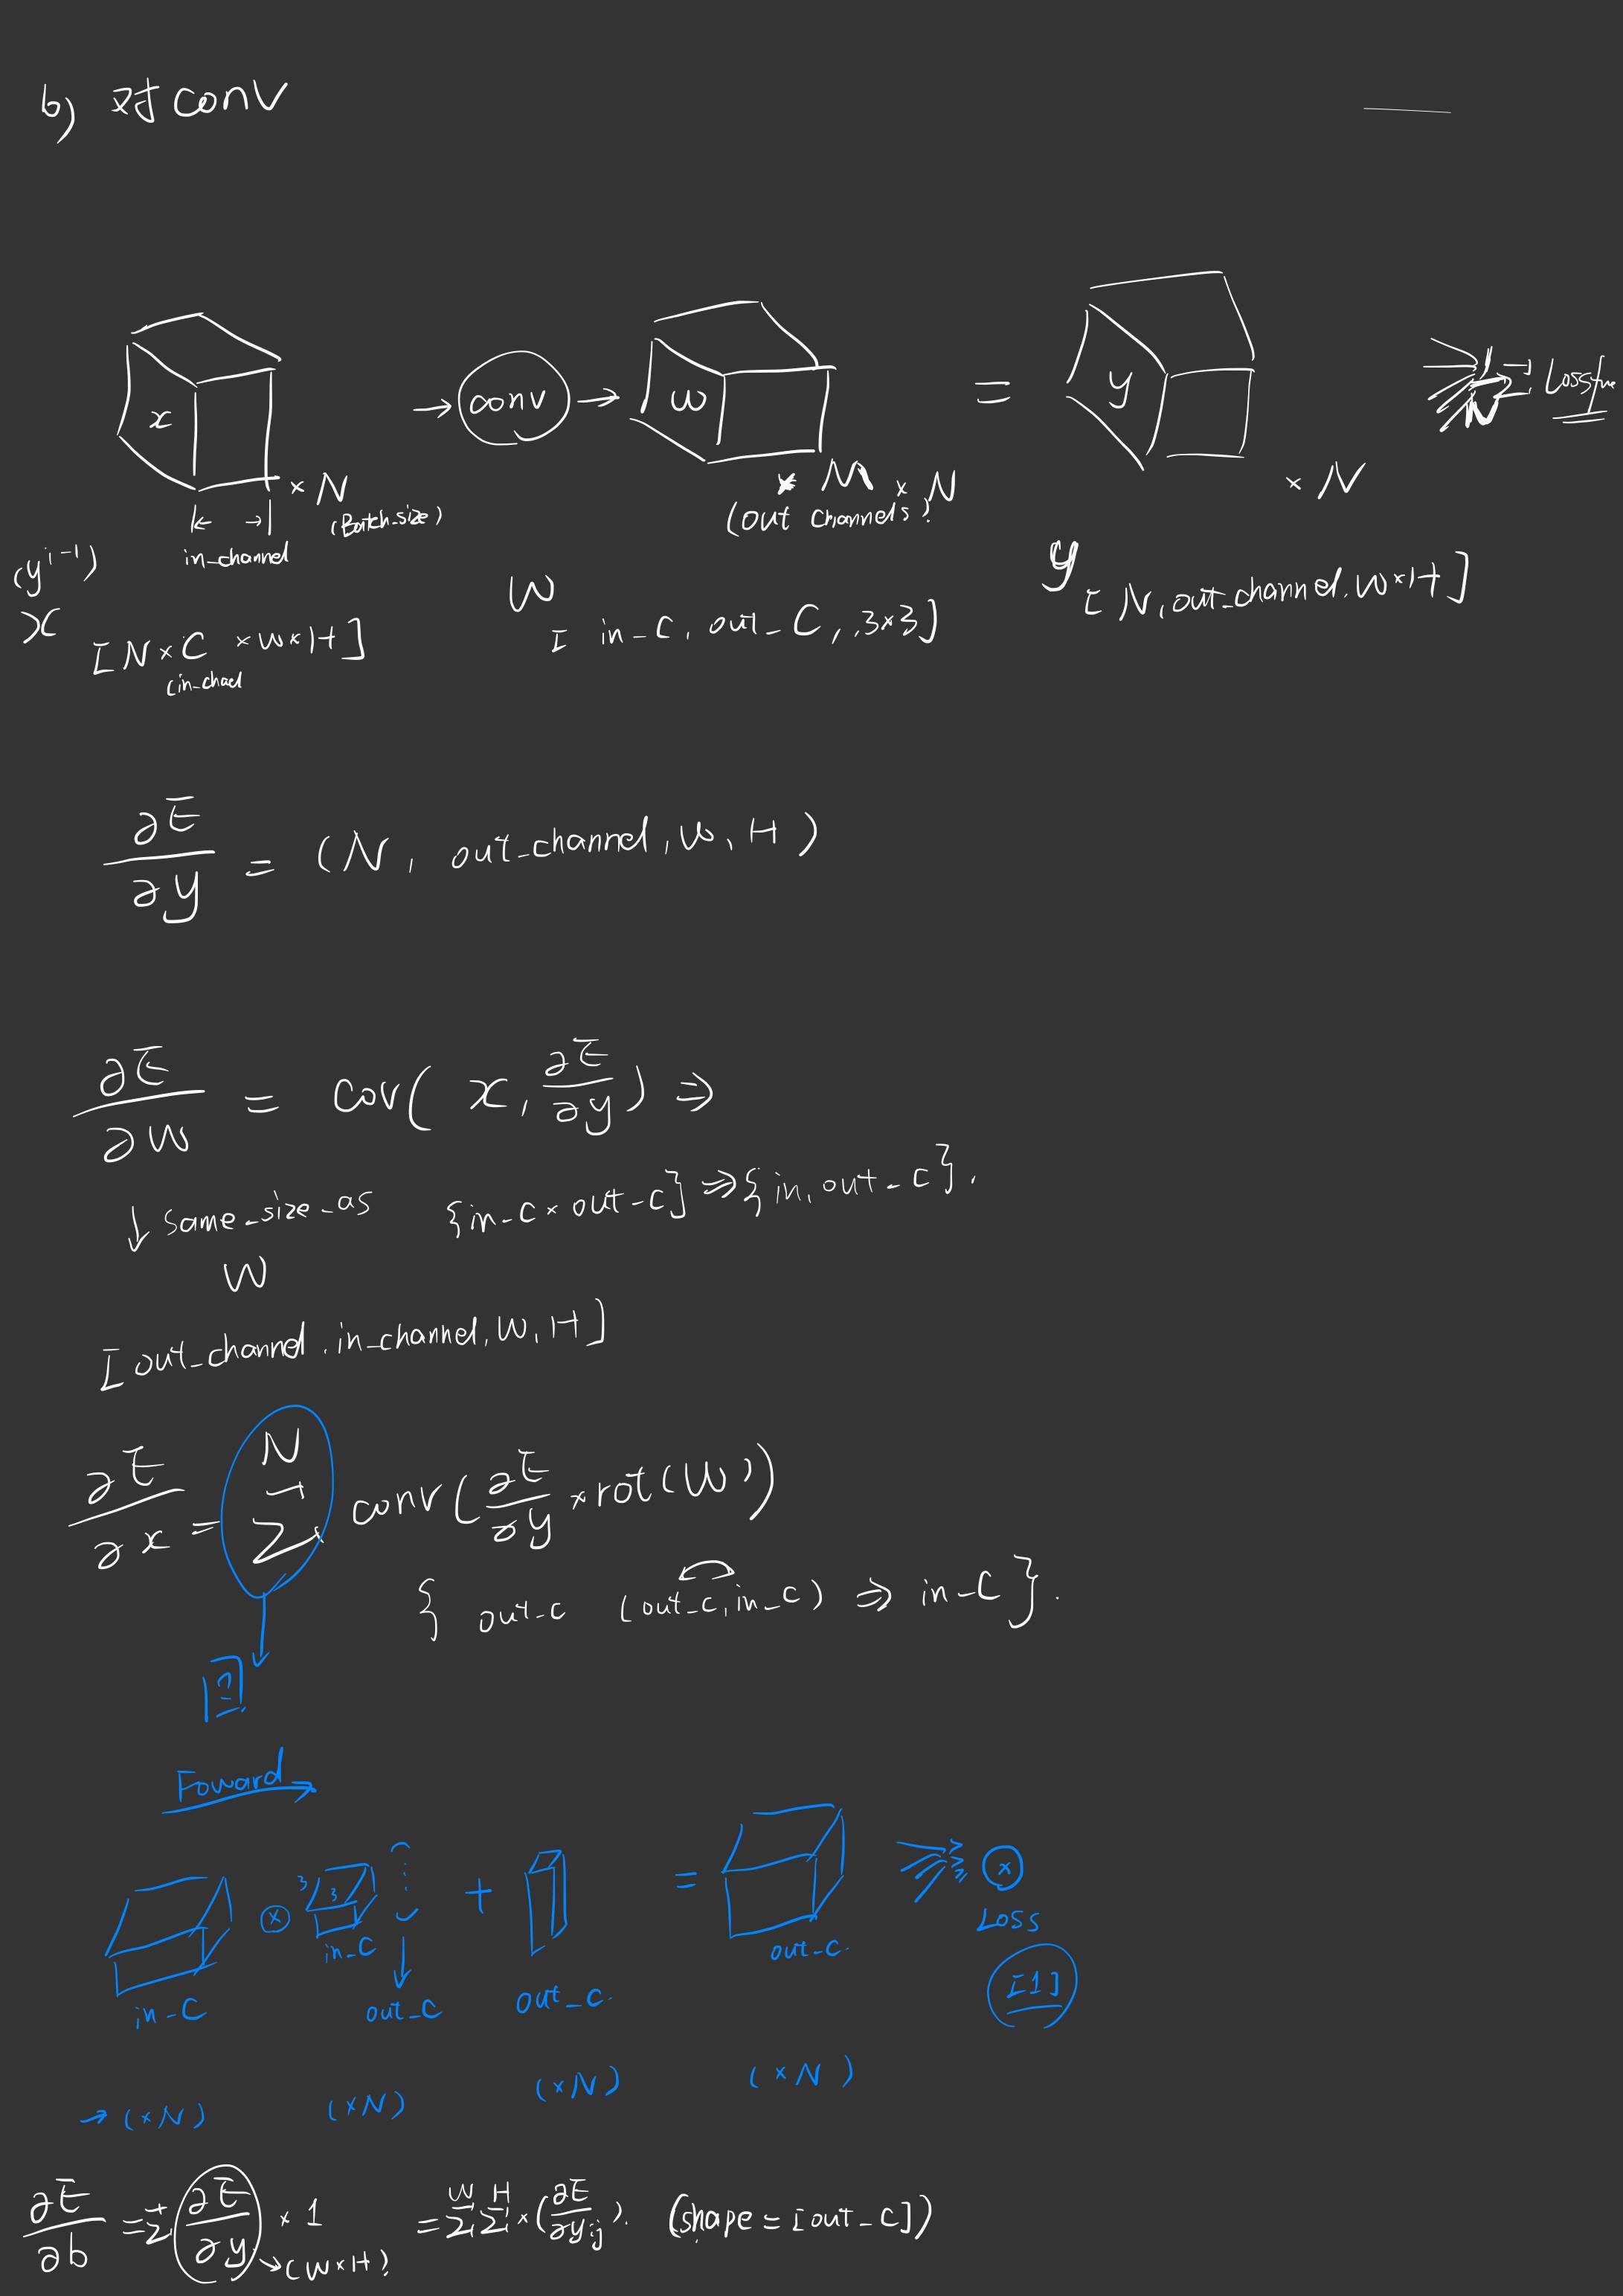 b) 对conv
x → conv → w = y = Loss
× N (Batch_size)
in_channel
× M × N
(out channels)
× N
(y^{i-1})
x [N × C × w × H]
(in_chael
W [in_C, out_C, 3×3]
y [N, out_channel, W×H]
∂E/∂y = (N, out_channel, W, H)
∂E/∂W = cov(x, ∂E/∂y) ⇒
↓ same_size_as W
{in_C × out_C} ⇒ {in, out_C}.
[out_channel, in_channel, W, H]
∂E/∂x = Σ^N conv(∂E/∂y * rot(W))
{ out_C (out_C, in_C) ⇒ in_C }.
Foward →
⊗ 3 3 + = ⊗
in_C in_C out_C out_C. out_C. Loss
[1]
→ (×N) (×N) (×N) (×N)
∂E/∂b = Σ ∂E/∂y × 1 = Σ^W Σ^H × (∂E/∂y_{ij}). (shape = [out_C])
→ (W×H)